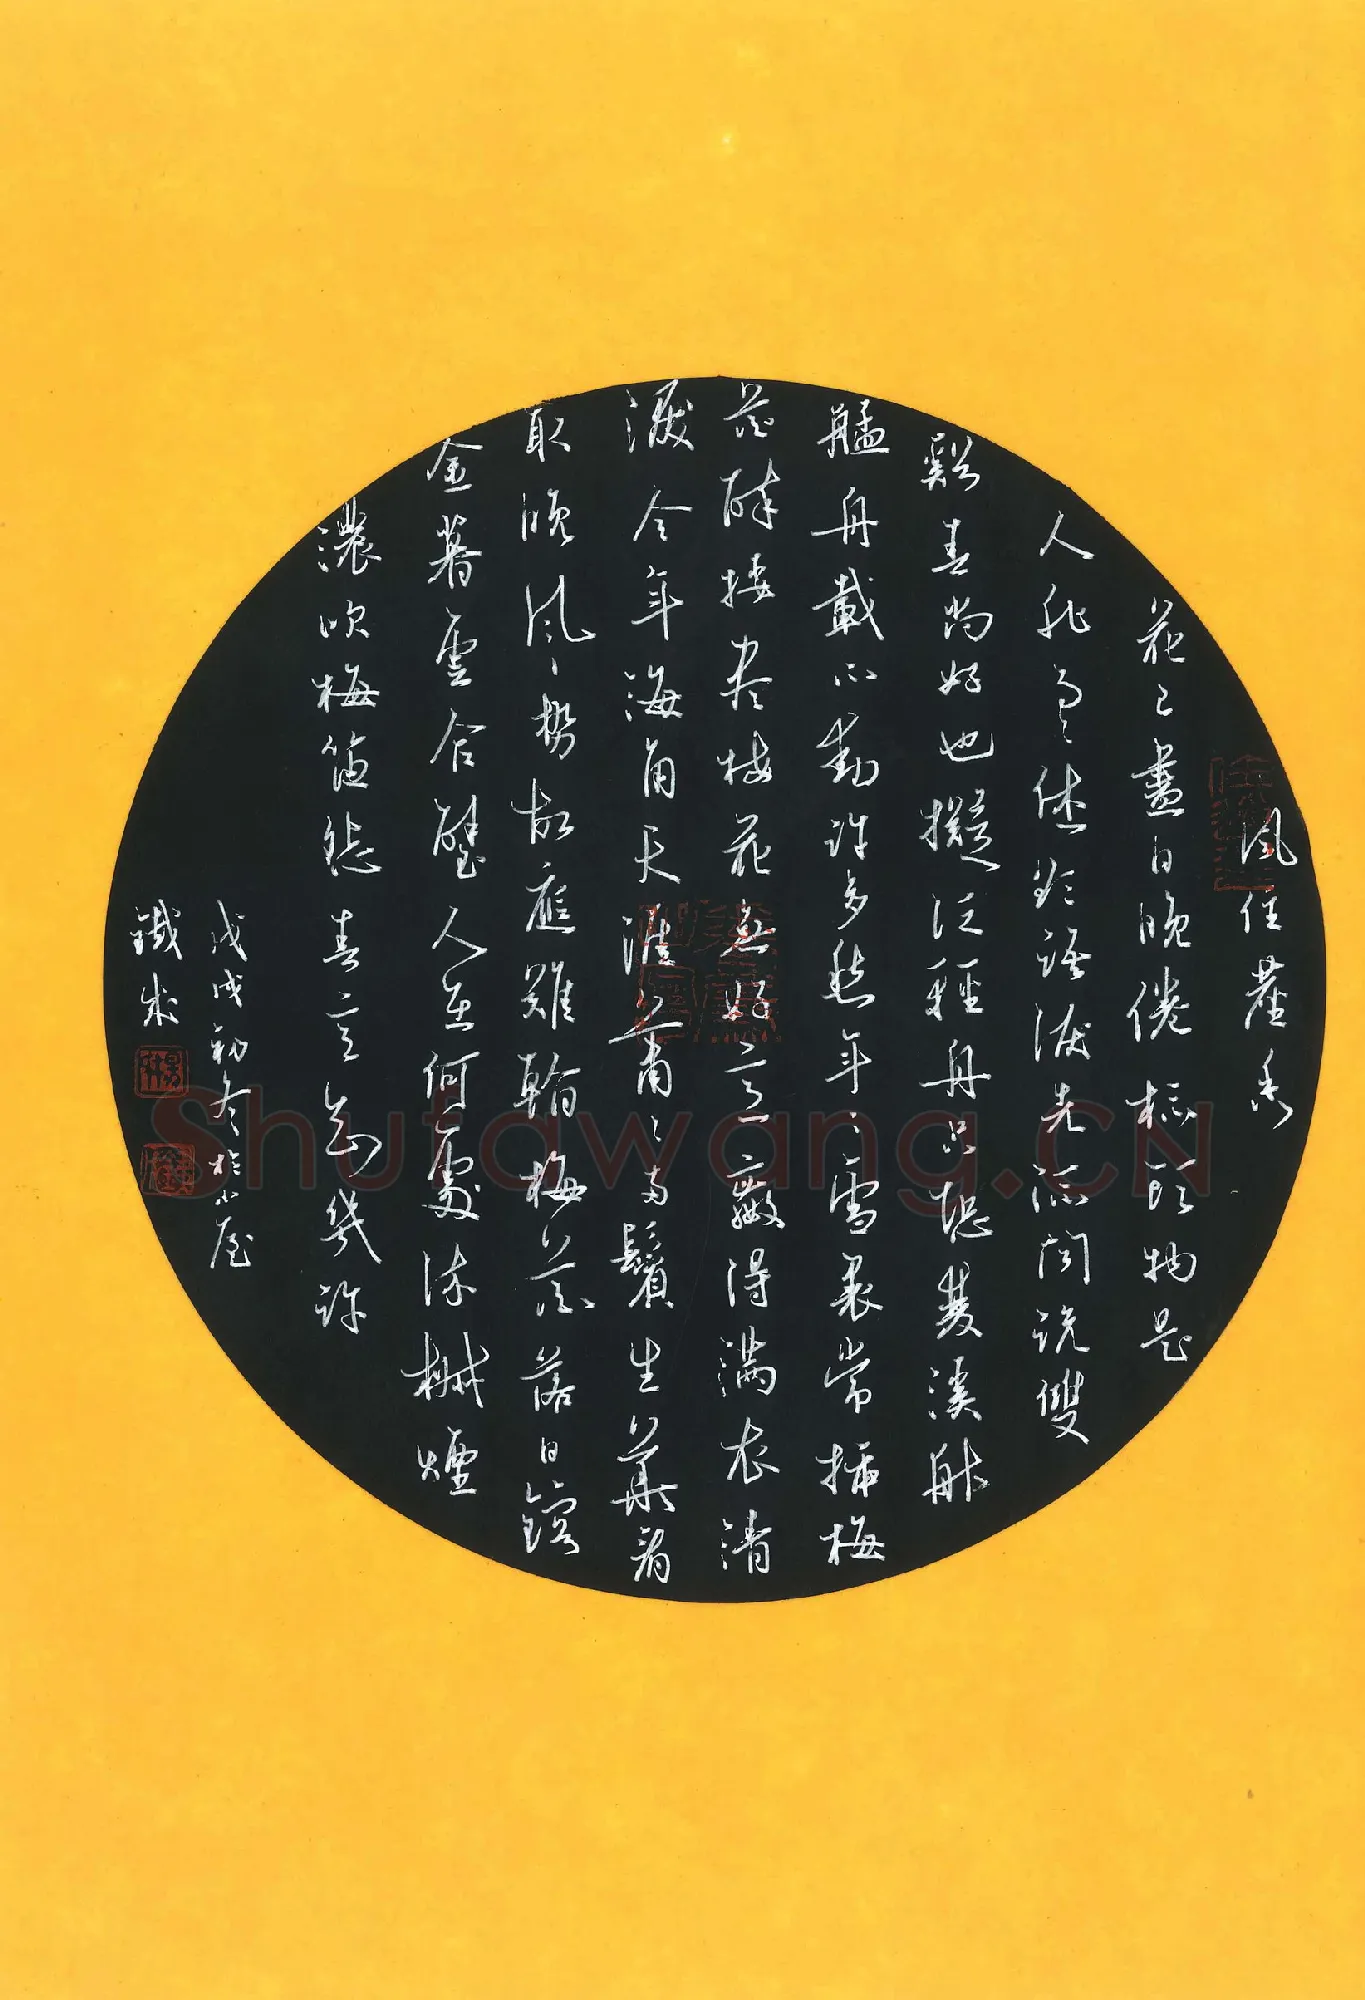 風住塵香
花〻盡日晚倦梳頭物是
人非事〻休欲語淚先流聞說雙
谿春尚好也擬泛輕舟只恐雙溪舴
艋舟載不動許多愁年〻雪裏常插梅
花醉挼盡梅花無好意贏得滿衣清
淚今年海角天涯蕭〻兩鬢生華看
取晚風〻勢故應難看梅花落日鎔
金暮雲合璧人在何處染柳煙
濃吹梅笛怨春意知幾許
戊戌初冬於小屋
鐵成
Shufawang.CN